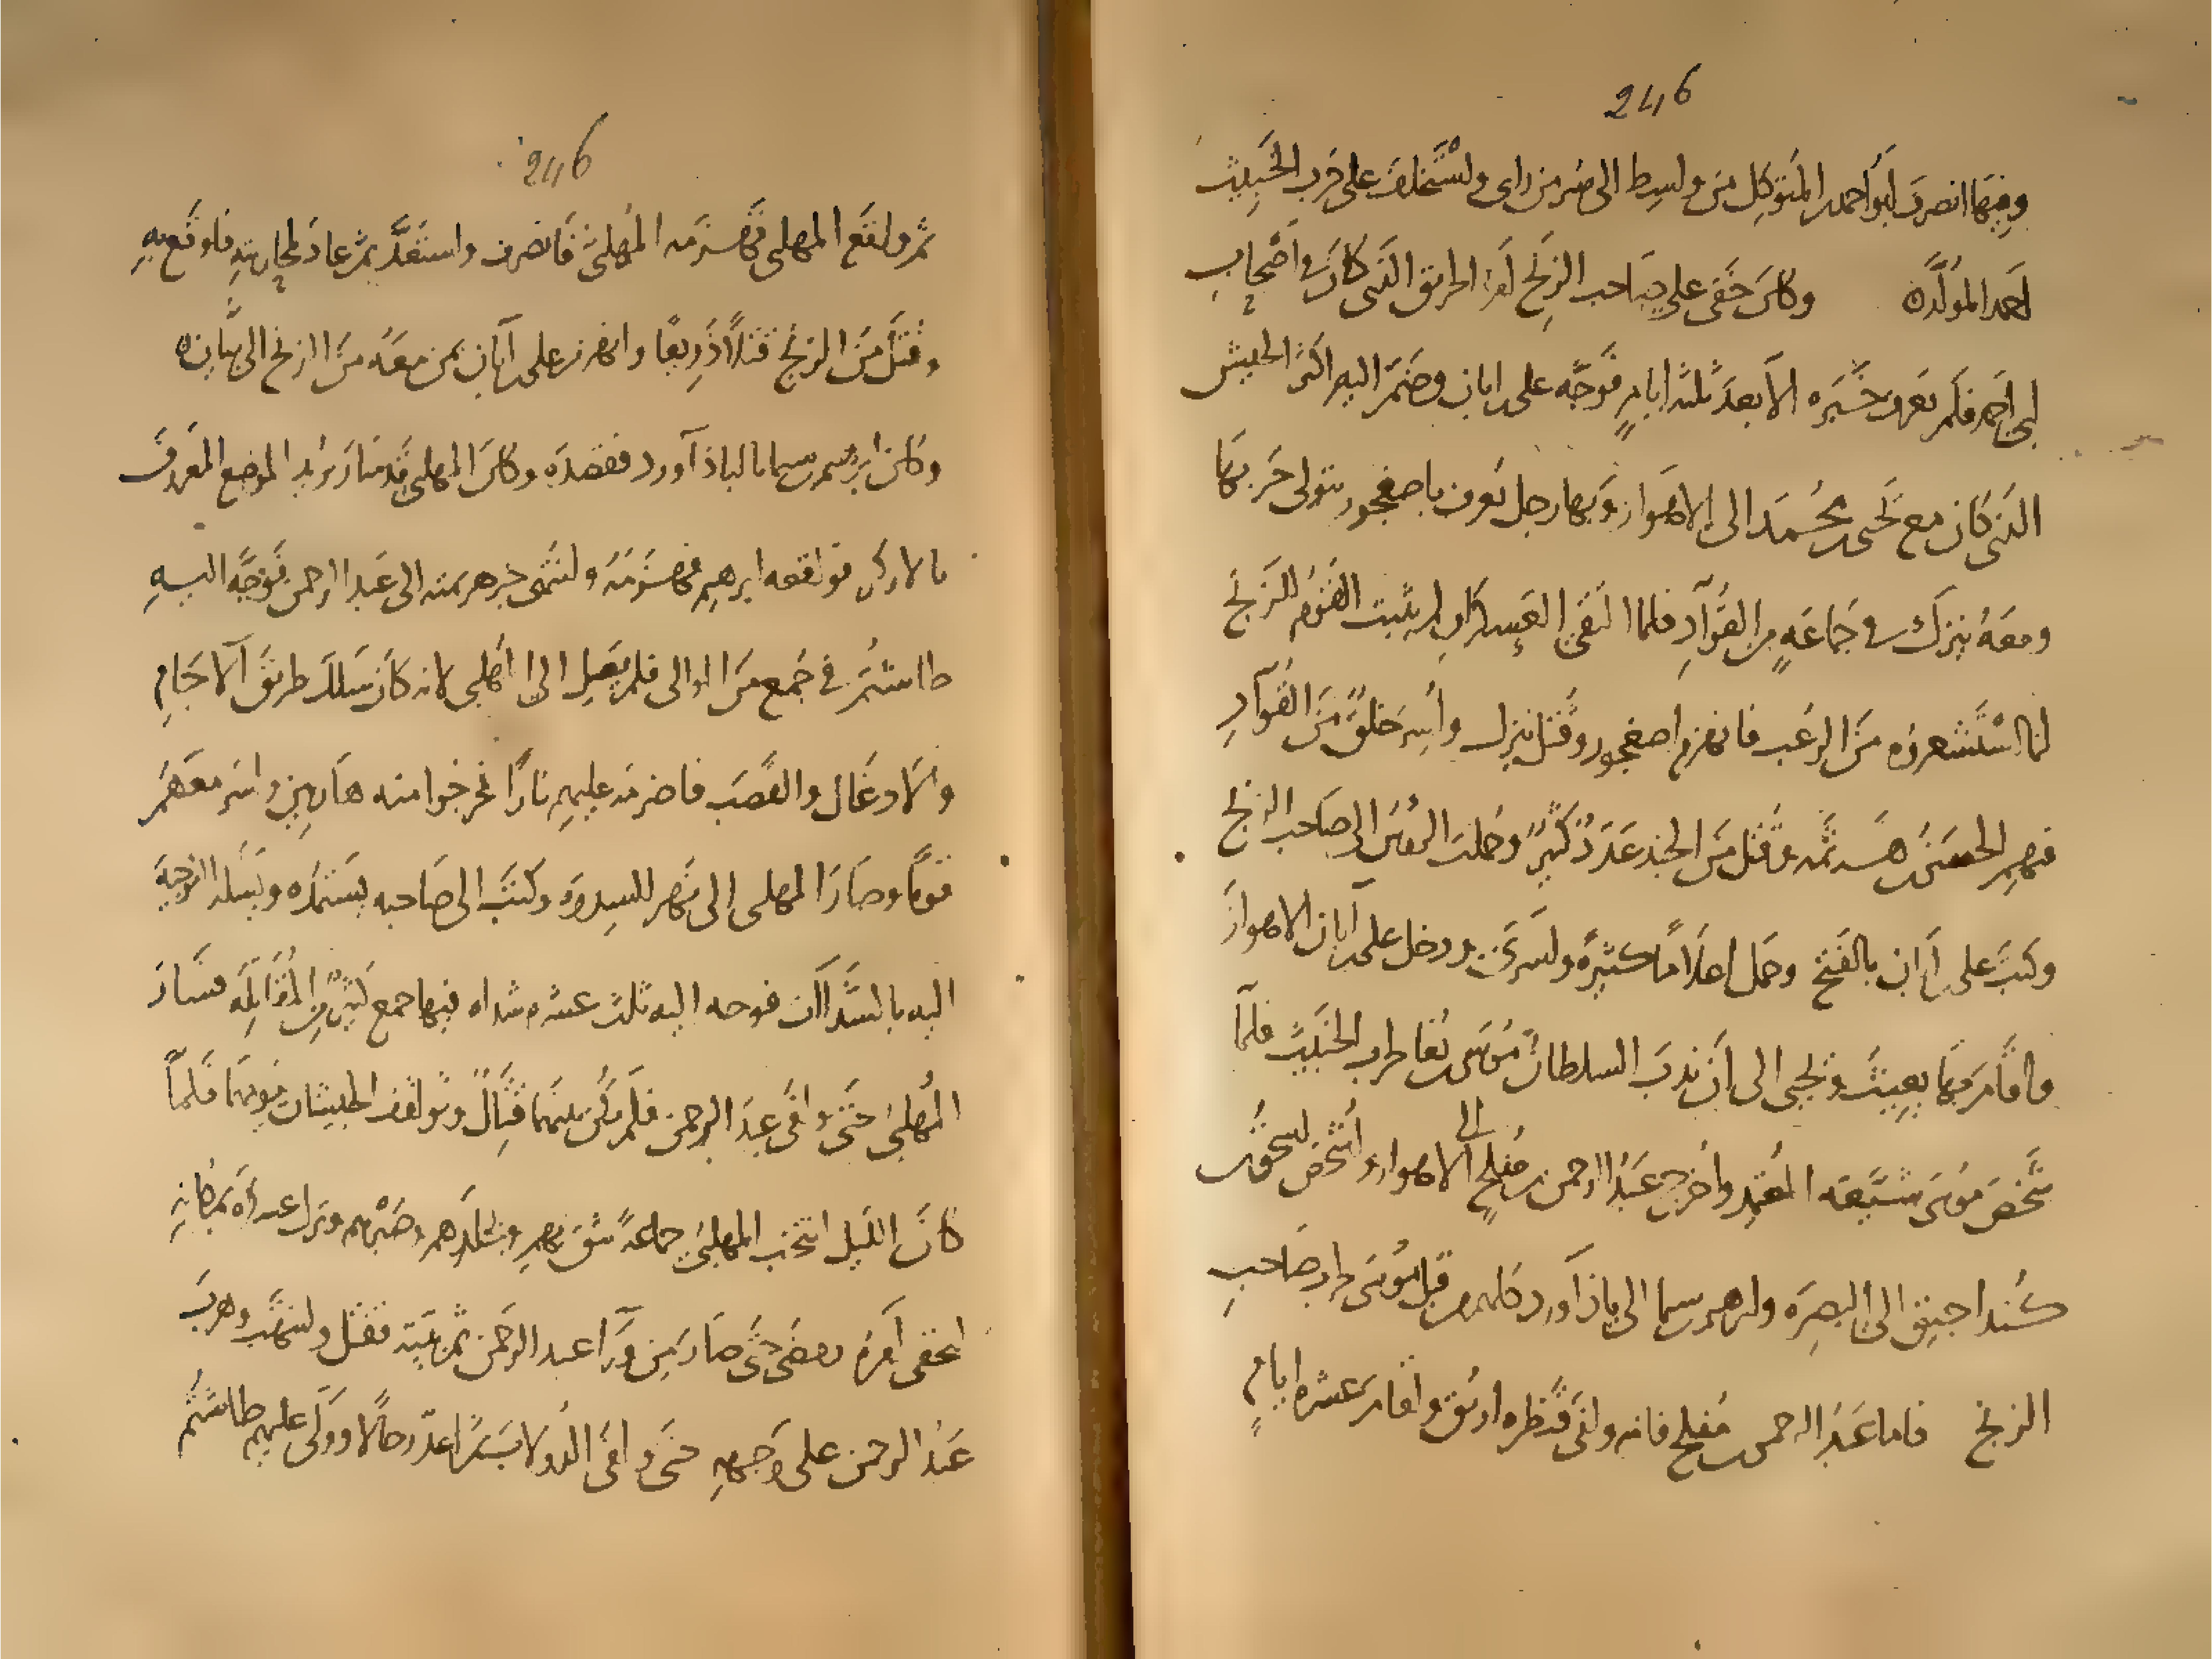 246
وفيها انصرف ابو احمد المتوكل من واسط الى سر من راى واستخلف على حرب الخبيث
احمد المولد وكان خفى على صاحب الزنج امر الحريق الذى كان فى اصحاب
ابى احمد فلم يعرف خبره الا بعد ثلثه ايام فوجه على ابان وضم اليه اكثر الجيش
الذى كان مع يحيى محمد الى الاهواز وبها رجل يعرف باصغجور يتولى حربها
ومعه نيزك فى جماعه من القواد فلما التقى العسكران لم يثبت القوم للزنج
لما استشعروه من الرعب فانهزم اصغجور وقتل نيزك واسر خلق من القواد
فيهم الحسن هرثمه وقتل من الجند عدد كثير وحملت الروس الى صاحب الزنج
وكتب على ابان بالفتح وحمل اعلاما كثيره واسرى ودخل على ابان الاهواز
واقام بها يعيث ويجبى الى ان ندب السلطان موسى بغا لحرب الخبيث فلما
شخص موسى شيعه المعتمد واخرج عبد الرحمن مفلح الى الاهواز واشخص اسحق
كنداجيق الى البصره وابرهيم سيما الى باذآورد كلهم من قبل موسى لحرب صاحب
الزنج فاما عبد الرحمن مفلح فانه وافى قنطره اربق واقام عشره ايام
246
ثم واقع المهلبى فهزمه المهلبى فانصرف واستعد ثم عاد لمحاربته فاوقع به
وقتل من الزنج قتلا ذريعا وانهزم على ابان بمن معه من الزنج الى بيان
وكان ابرهيم سيما بالباذآورد فقصده وكان المهلبى قد سار يريد الموضع المعروف
فواقعه ابرهيم فهزمه وانتهى خبر هزيمته الى عبد الرحمن فوجه اليه
طاشتمر فى جمع من الموالى فلم يصل الى المهلبى لانه كان سلك طريق الآجام
والادغال والقصب فاضرمه عليهم نارا فخرجوا منه هاربين واسر معهم
قوما وصار المهلبى الى نهر السدره وكتب الى صاحبه يستمده ويسله التوجيه
اليه بالشذاآت فوجه اليه ثلث عشره شذاه فيها جمع كثير من المقاتله فسار
المهلبى حتى وافى عبد الرحمن فلم يكن بينهما قتال وتواقف الجيشان يومهما فلما
كان الليل انتخب المهلبى جماعة يثق بهم وبجلدهم وصبرهم وترك عسكره بمكانه
ليخفى امره ومضى حتى صار من ورآ عبد الرحمن ثم بيته فقتل وانتهب وهرب
عبد الرحمن على وجهه حتى وافى الدولاب ثم اعد رجالا وولى عليهم طاشتم